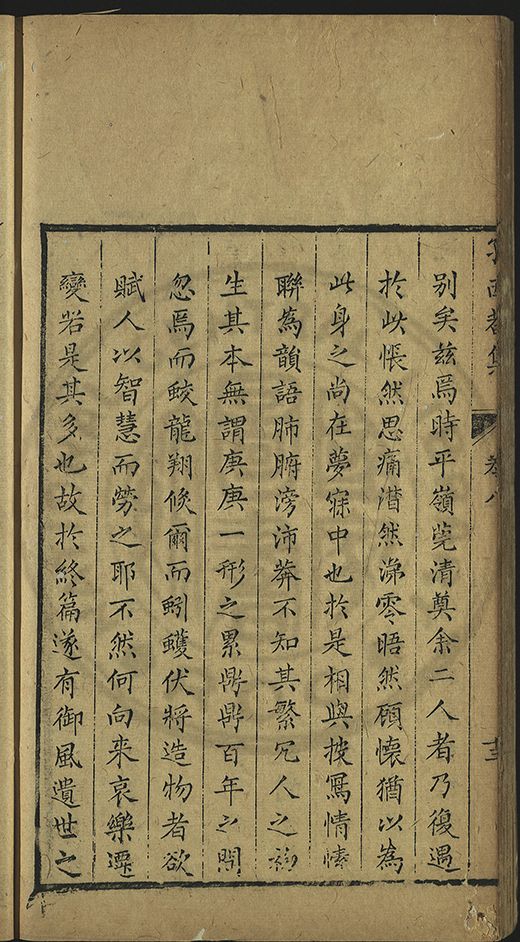 西巷集 卷八 十三
別矣茲焉時平嶺荒清奠余二人者乃復遇
於此悵然思痛潸然涕零晤然顧懷猶以為
此身之尚在夢寐中也於是相與披寫情愫
聯為韻語肺腑滂沛莽不知其繁冗人之
生其本無謂庚庚一形之累鼎鼎百年之間
忽焉而蛟龍翔倏爾而蚓蠖伏將造物者欲
賦人以智慧而勞之耶不然何向來哀樂遷
變若是其多也故於終篇遂有御風遺世之